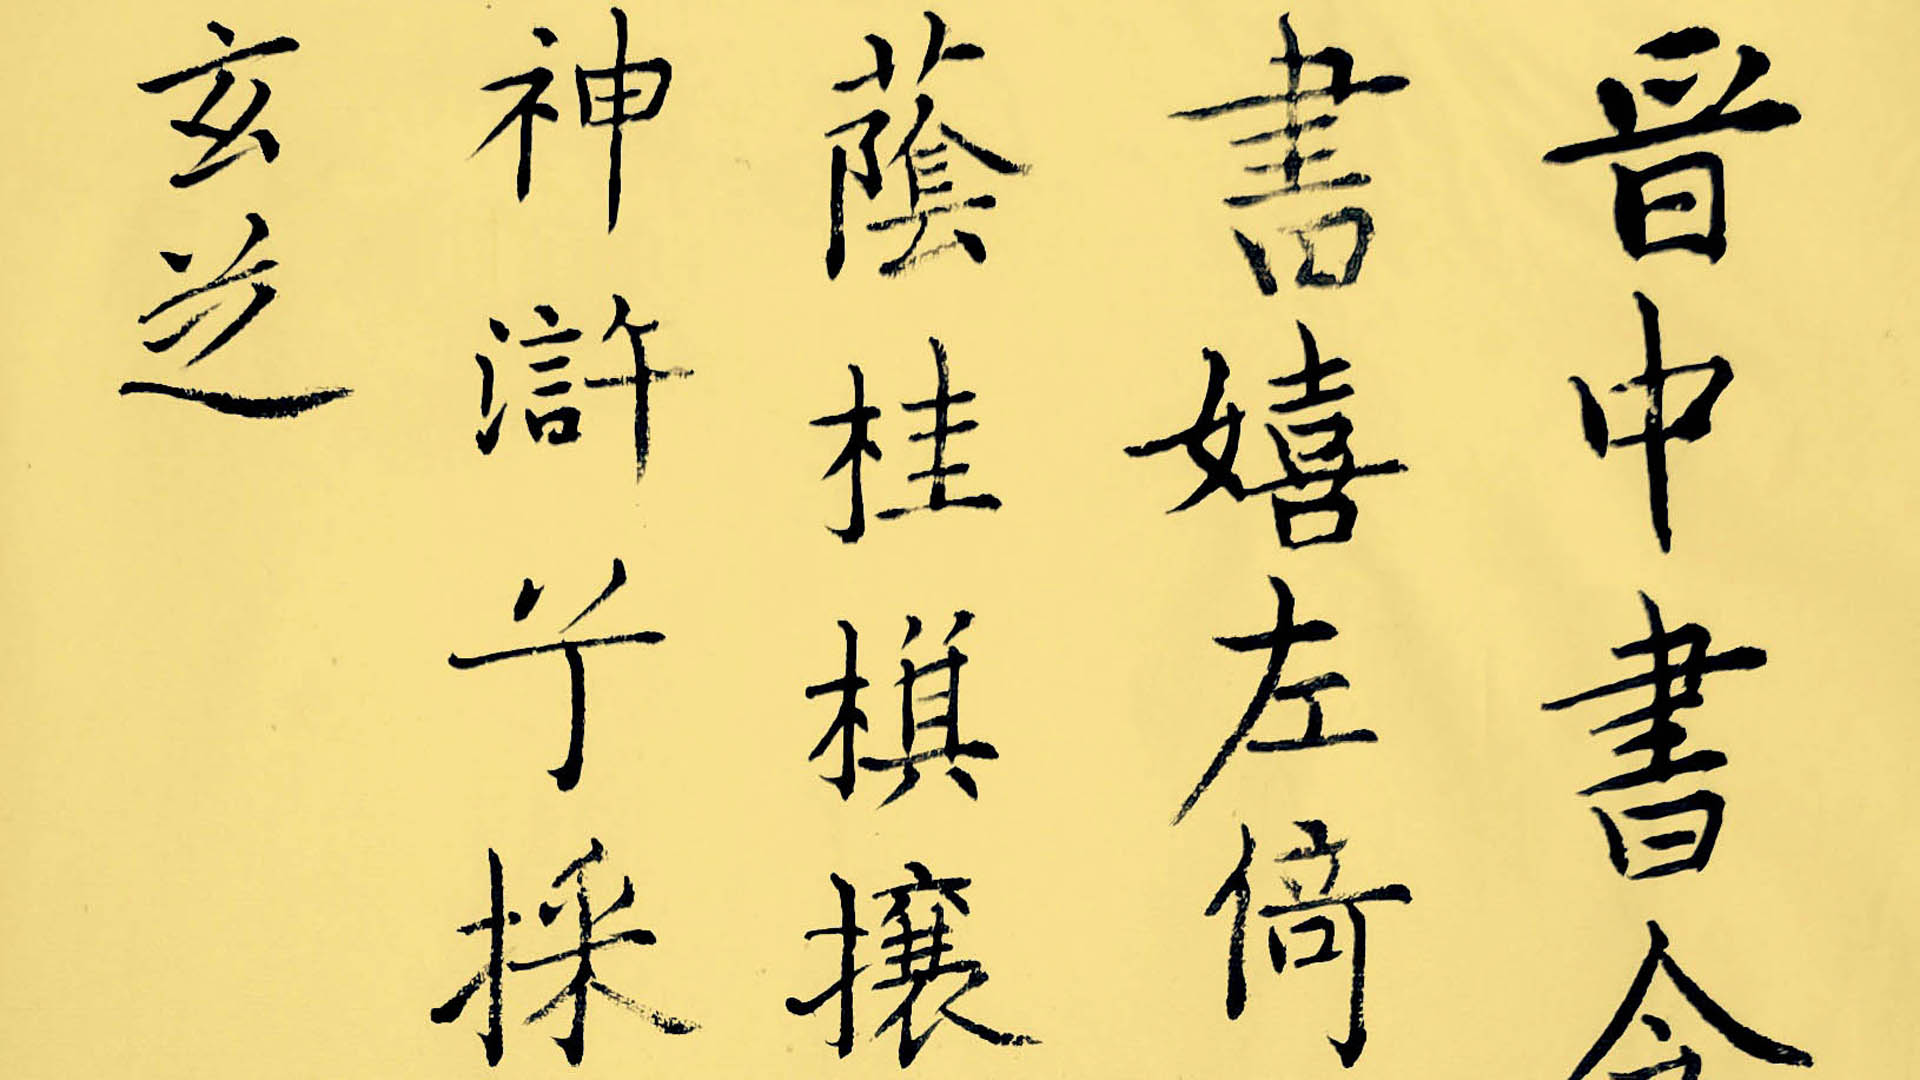 晉中書令
書嬉左倚
蔭桂棋攘
神滸兮採
玄芝